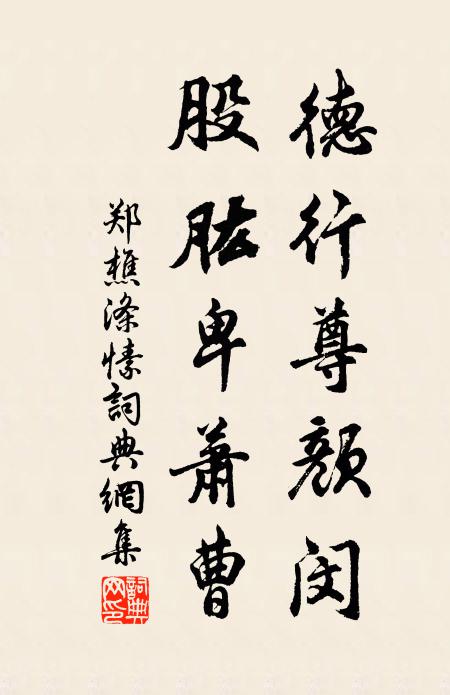 德行尊颜闵
股肱卑萧曹
郑樵涤愫詞典網集
詞典网印